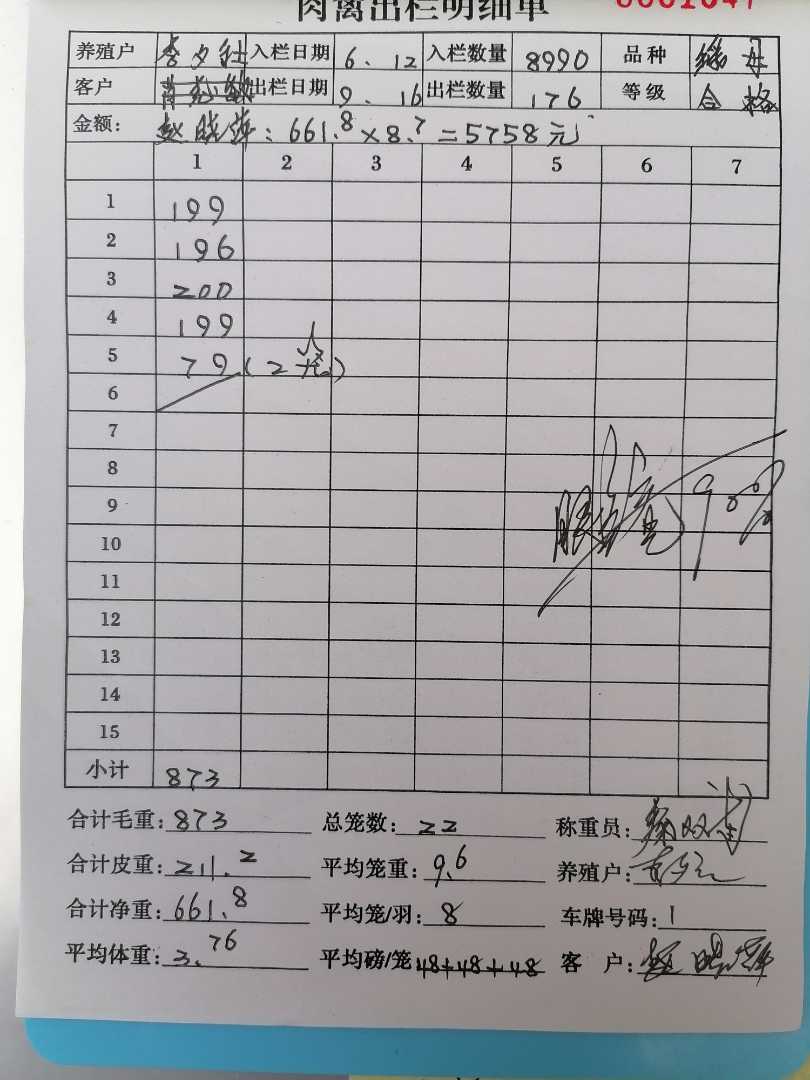 肉禽出栏明细单
养殖户 李夕红 入栏日期 6.12 入栏数量 8990 品种
客户 出栏日期 9.16 出栏数量 176 等级 合格
金额: 赵晓萍:661.8×8.7=5758元
1 2 3 4 5 6 7
1 199
2 196
3 200
4 199
5 79(2笼)
6
7
8
9
10
11
12
13
14
15
小计 873
合计毛重:873 总笼数:22 称重员:
合计皮重:211.2 平均笼重:9.6 养殖户:
合计净重:661.8 平均笼/羽:8 车牌号码:1
平均体重:3.76 平均磅/笼48+48+48 客 户:赵晓萍